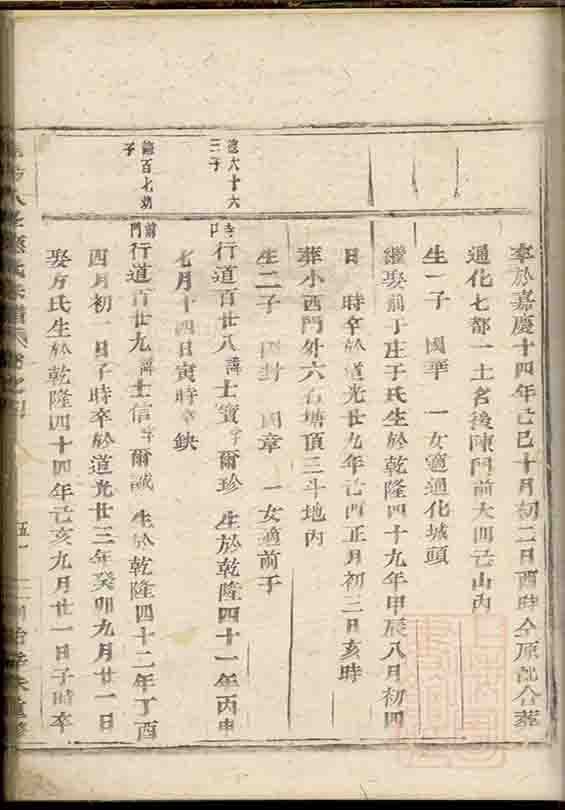 卒於嘉慶十四年己巳十月初二日酉時仝原配合葬
通化七都一土名後陳門前大四己山丙
生一子 國華 一女適通化城頭
繼娶前于庄于氏生於乾隆四十九年甲辰八月初四
日 時卒於道光廿九年己酉正月初三日亥時
葬小西門外六石塘頂三斗地內
生二子 國封 國章 一女適前于
六十六
三子
行道百廿八諱士寶字爾珍 生於乾隆四十一年丙申
七月十四日寅時卒缺
百七幼
子
前門
行道百廿九諱士信字爾誠 生於乾隆四十二年丁酉
四月初一日子時卒於道光廿三年癸卯九月廿一日
娶方氏生於乾隆四十四年己亥九月廿一日子時卒